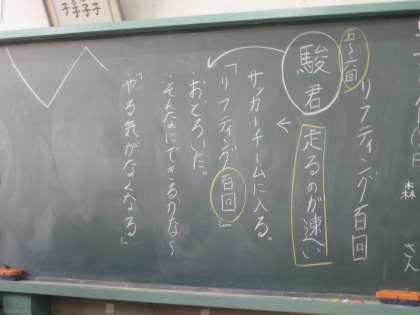 森 さん
リフティング百回
駿君
走るのが速い
サッカーチームに入る。
「リフティング百回」
おどろいた。
そんなにできるかな～
「やる気がなくなる」
子子子子